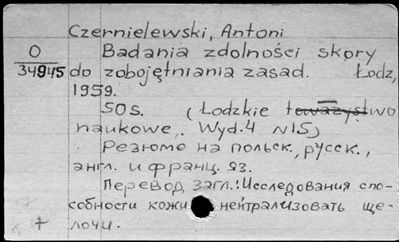 Czernielewski, Antoni
O Badania zdolności skóry
34945 do zobojętniania zasad. Łodz,
1959.
50s. (Łodzkie towarzystwo
naukowe, Wyd. 4 N15)
Резюме на польск., русск.,
англ. и франц. яз.
Перевод загл.: Исследования спо-
собности кожи нейтрализовать ще-
+ лочи.